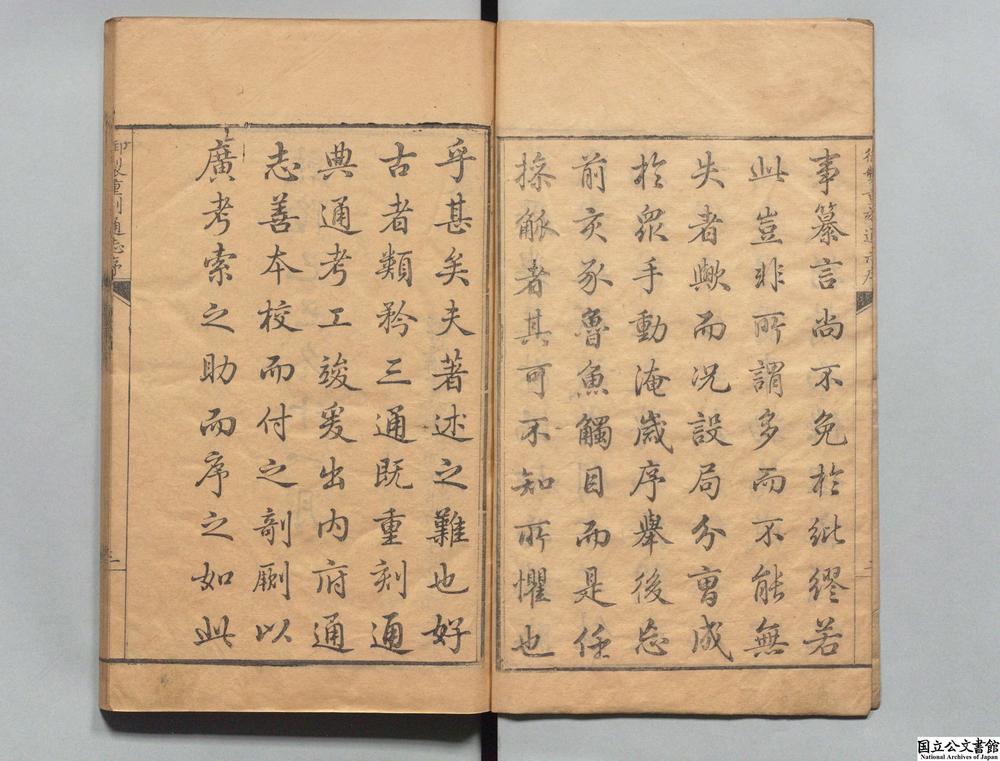 事纂言尚不免於紕繆若
此豈非所謂多而不能無
失者歟而况設局分曹成
於眾手動淹歲序舉後忘
前亥豕魯魚觸目而是任
操觚者其可不知所懼也
乎甚矣夫著述之難也好
古者類矜三通既重刻通
典通考工竣爰出內府通
志善本校而付之剞劂以
廣考索之助而序之如此
御製重刻通志序
二
国立公文書館
National Archives of Japan